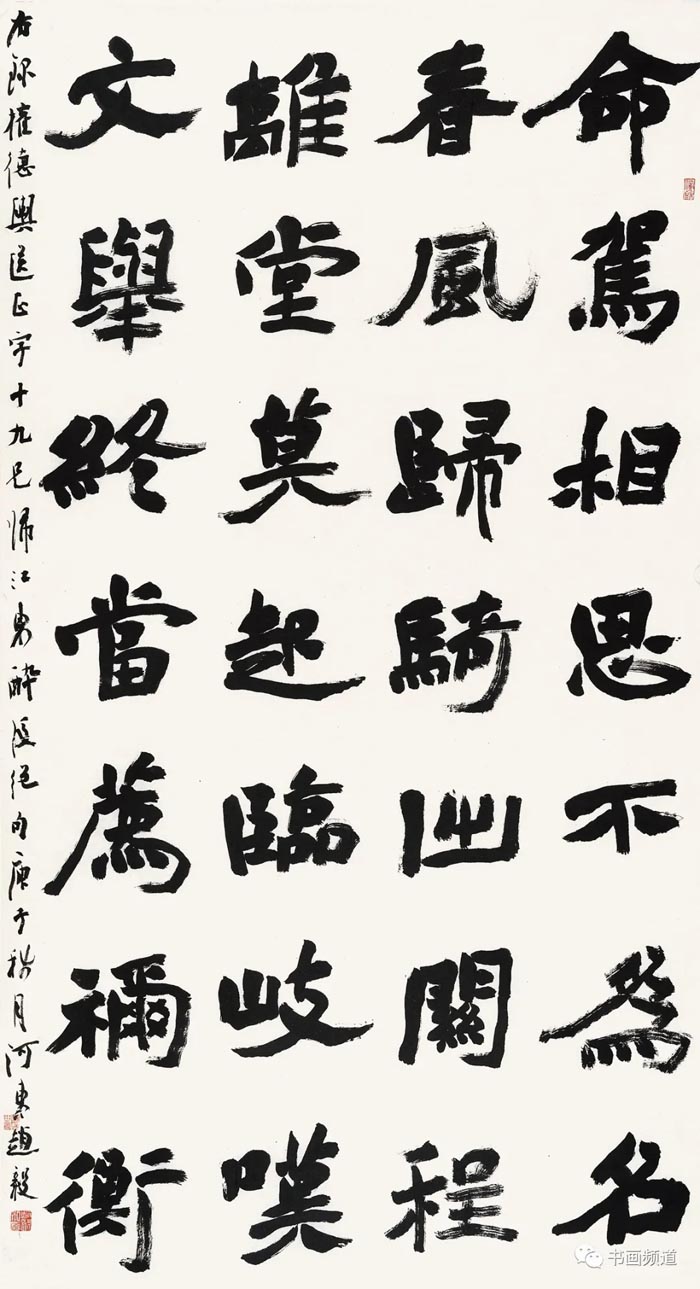 命駕相思不爲名
春風歸騎出關程
離堂莫起臨岐嘆
文舉終當薦禰衡
右錄權德輿送正字十九兄歸江東醉後絕句庚子秋月河東趙毅
书画频道